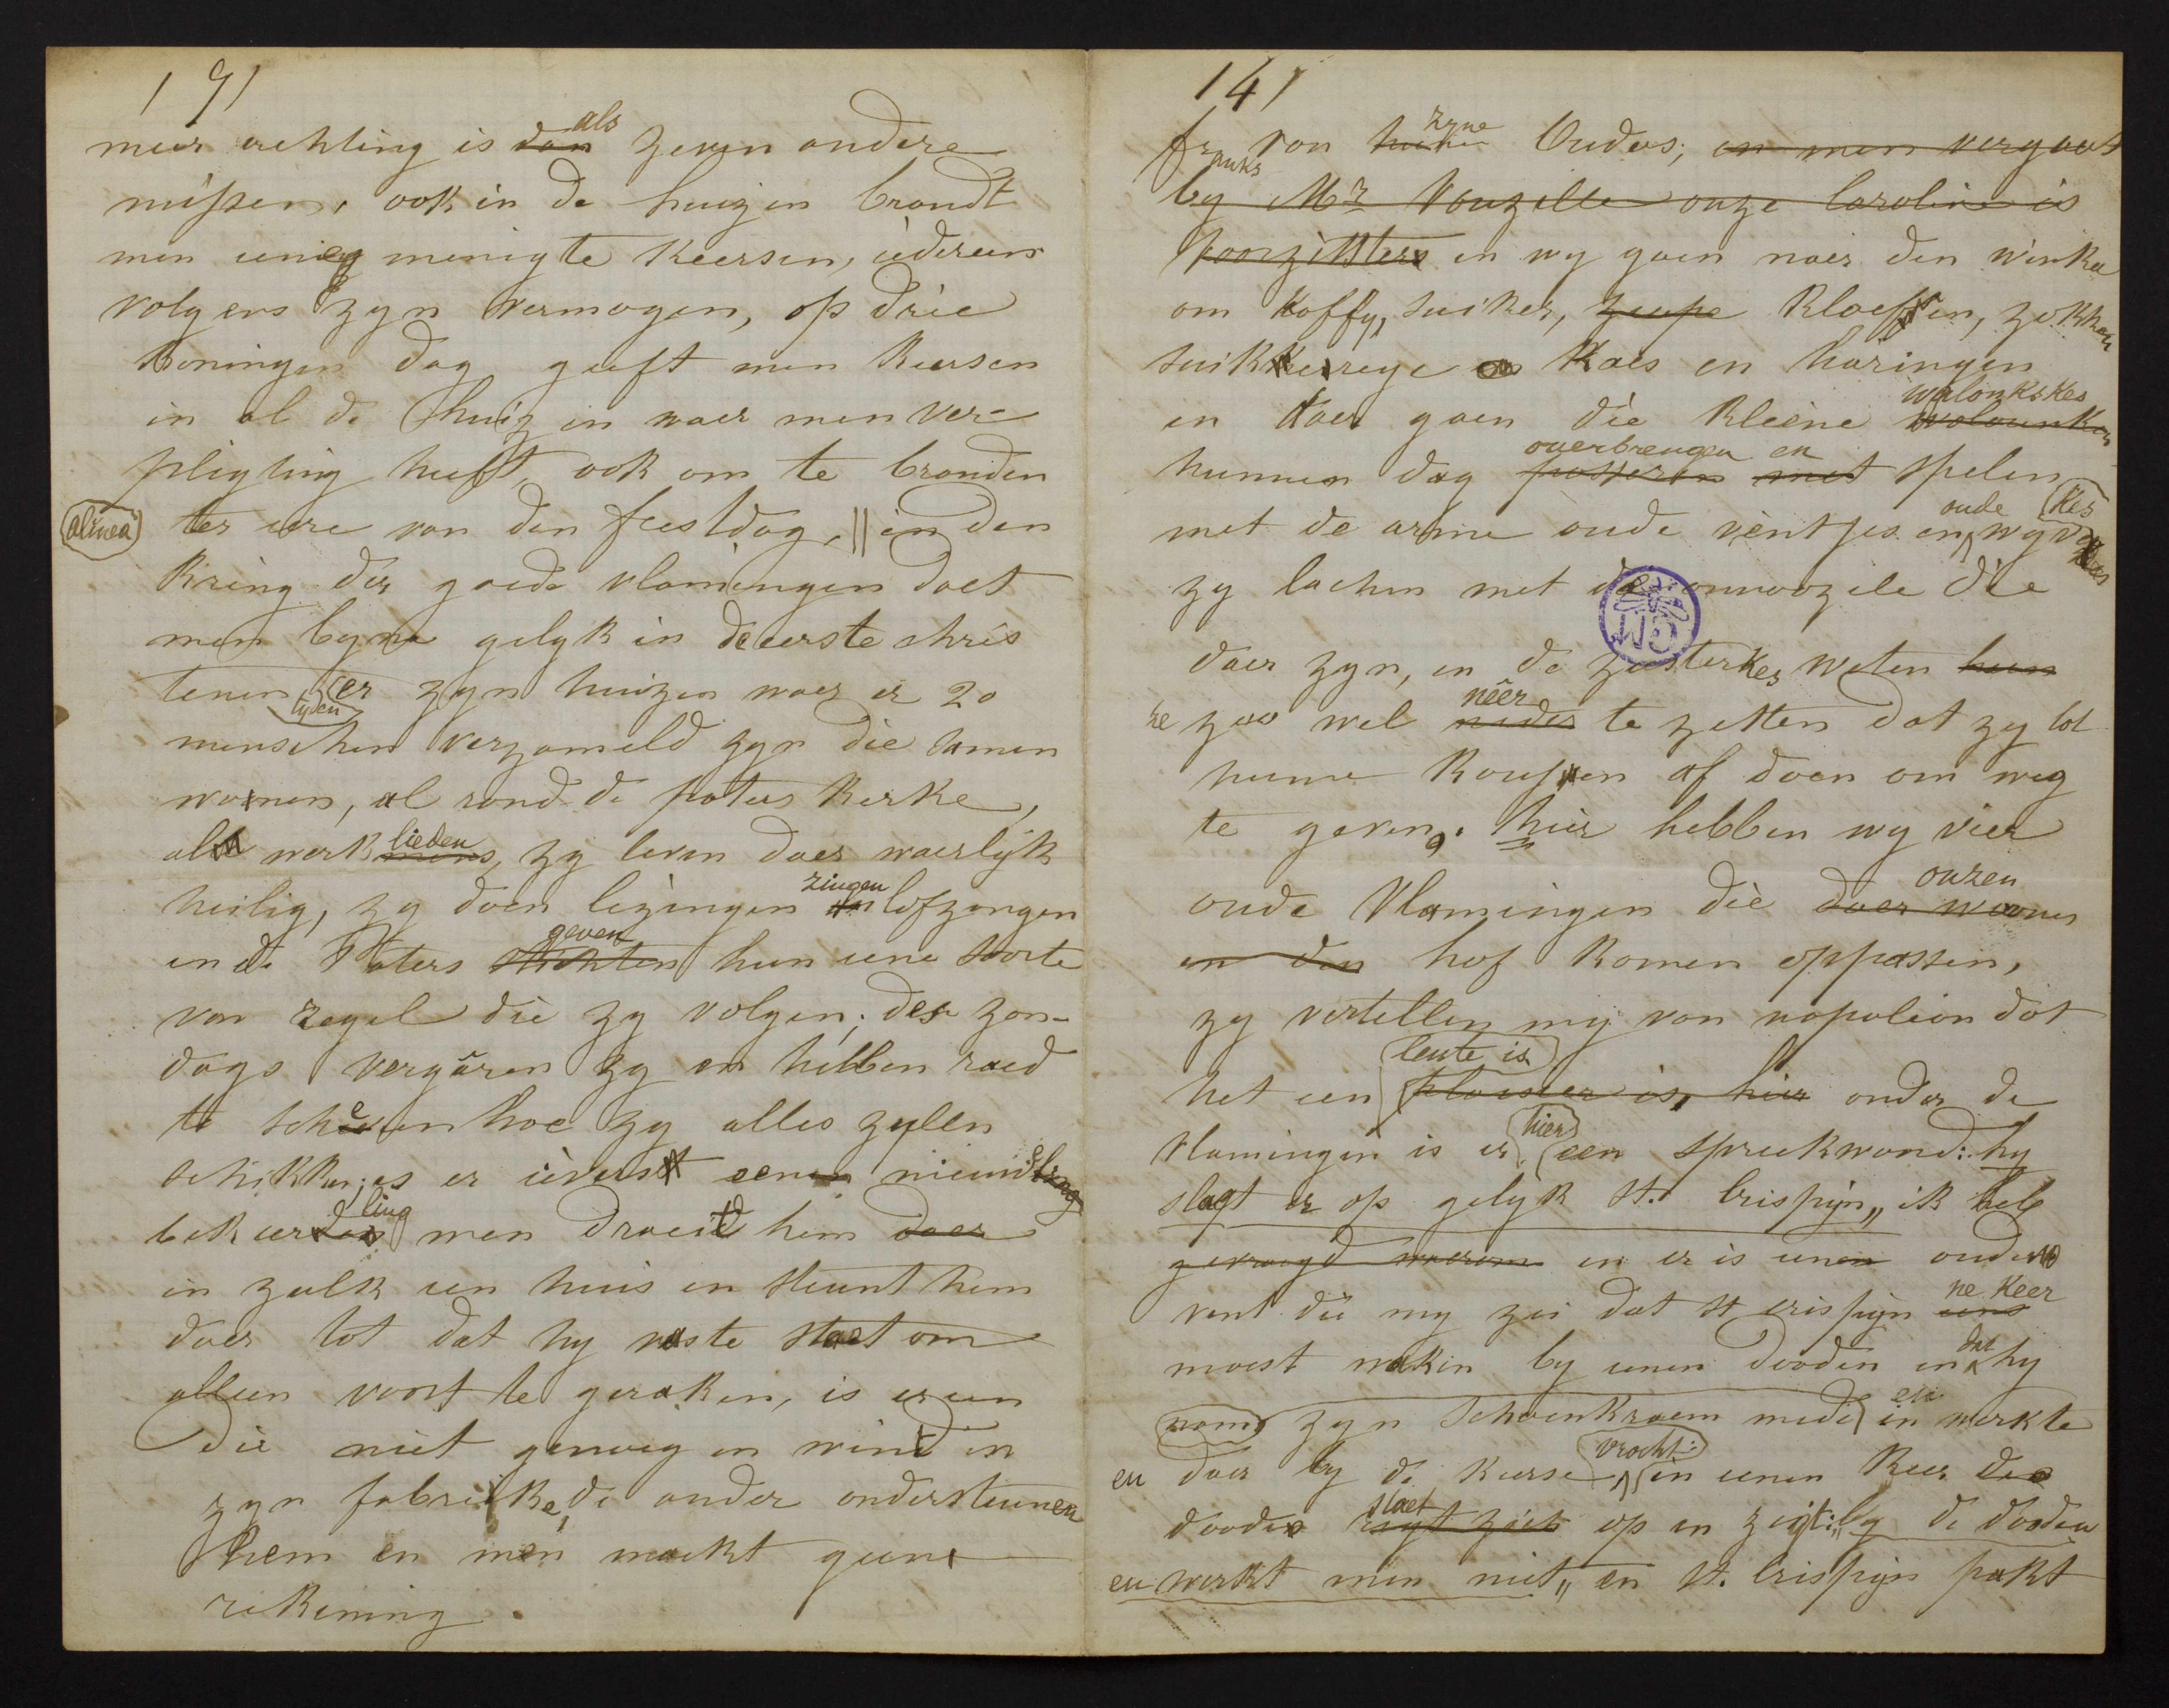 191
meer achting is dan als zeven andere
missen, ook in de huizen brandt
men eenig menigte keersen, iedereen
volgens zyn vermogen, op drie
koningen dag geeft men keersen
in al de huizen waer men ver-
pligting heeft, ook om te branden
alinea ter eere van den feestdag, || in den
kring der goede vlamingen doet
men byna gelyk in de eerste chris
tenen tyden er zyn huizen waer er 20
menschen verzameld zyn die samen
woonen, al rond de paters kerke,
al werkmans lieden, zy leven daer waerlyk
heilig, zy doen lezingen zingen lofzangen
en de Paters stichten geven hun eene soorte
van regel die zy volgen; des zon-
dags vergâren zy en hebben raed
te schêeren hoe zy alles zullen
schikken; is er ievers eenen nieuw
bekeerden ling men draeit hem daer
in zulk een huis en steunt hem
daer tot dat hy vaste staet om
alleen voort te geraken, is er een
die niet genoeg en wind in
zyn fabrieke, de ander ondersteunen
hem en men maekt geene
rekening.
141
franks van hunne zyne Ouders; en men vergaert
by Mr Vouzelle onze Caroline is
voorzitster en wy gaen naer den winkel
om koffy, suiker, zeepe kloeffen, zokken
suikkereye kaes en haringen
en daer gaen die kleene walounken walonkskes
hunnen dag passeren overbrengen met en spelen
met de arme oude ventjes en oude wyvekes
zy lachen met de onnoozele die
daer zyn, en de zusterkes weten hun
ze zoo wel neder nêer te zetten dat zy tot
hunne kousen af doen om weg
te geven. hier hebben wy vier
oude Vlamingen die daer woonen onzen
en den hof komen oppassen,
zy vertellen my van napoleon dat
het een plaisier is, hier leute is onder de
Vlamingen is er hier een spreekwoord: hy
slagt er op gelyk St. Crispyn„ ik heb
gevraegd waerom en er is eenen ouden
vent die my zei dat St crispyn eens ne keer
moest waken by eenen dooden en dat hy
nam zyn schoenkraem mede in en werkte
en daer by de keerse vrocht: en eenen keer de
dooden regt zich staet op en zegt:„by de dooden
en werkt men niet„ en St. Crispyn pakt